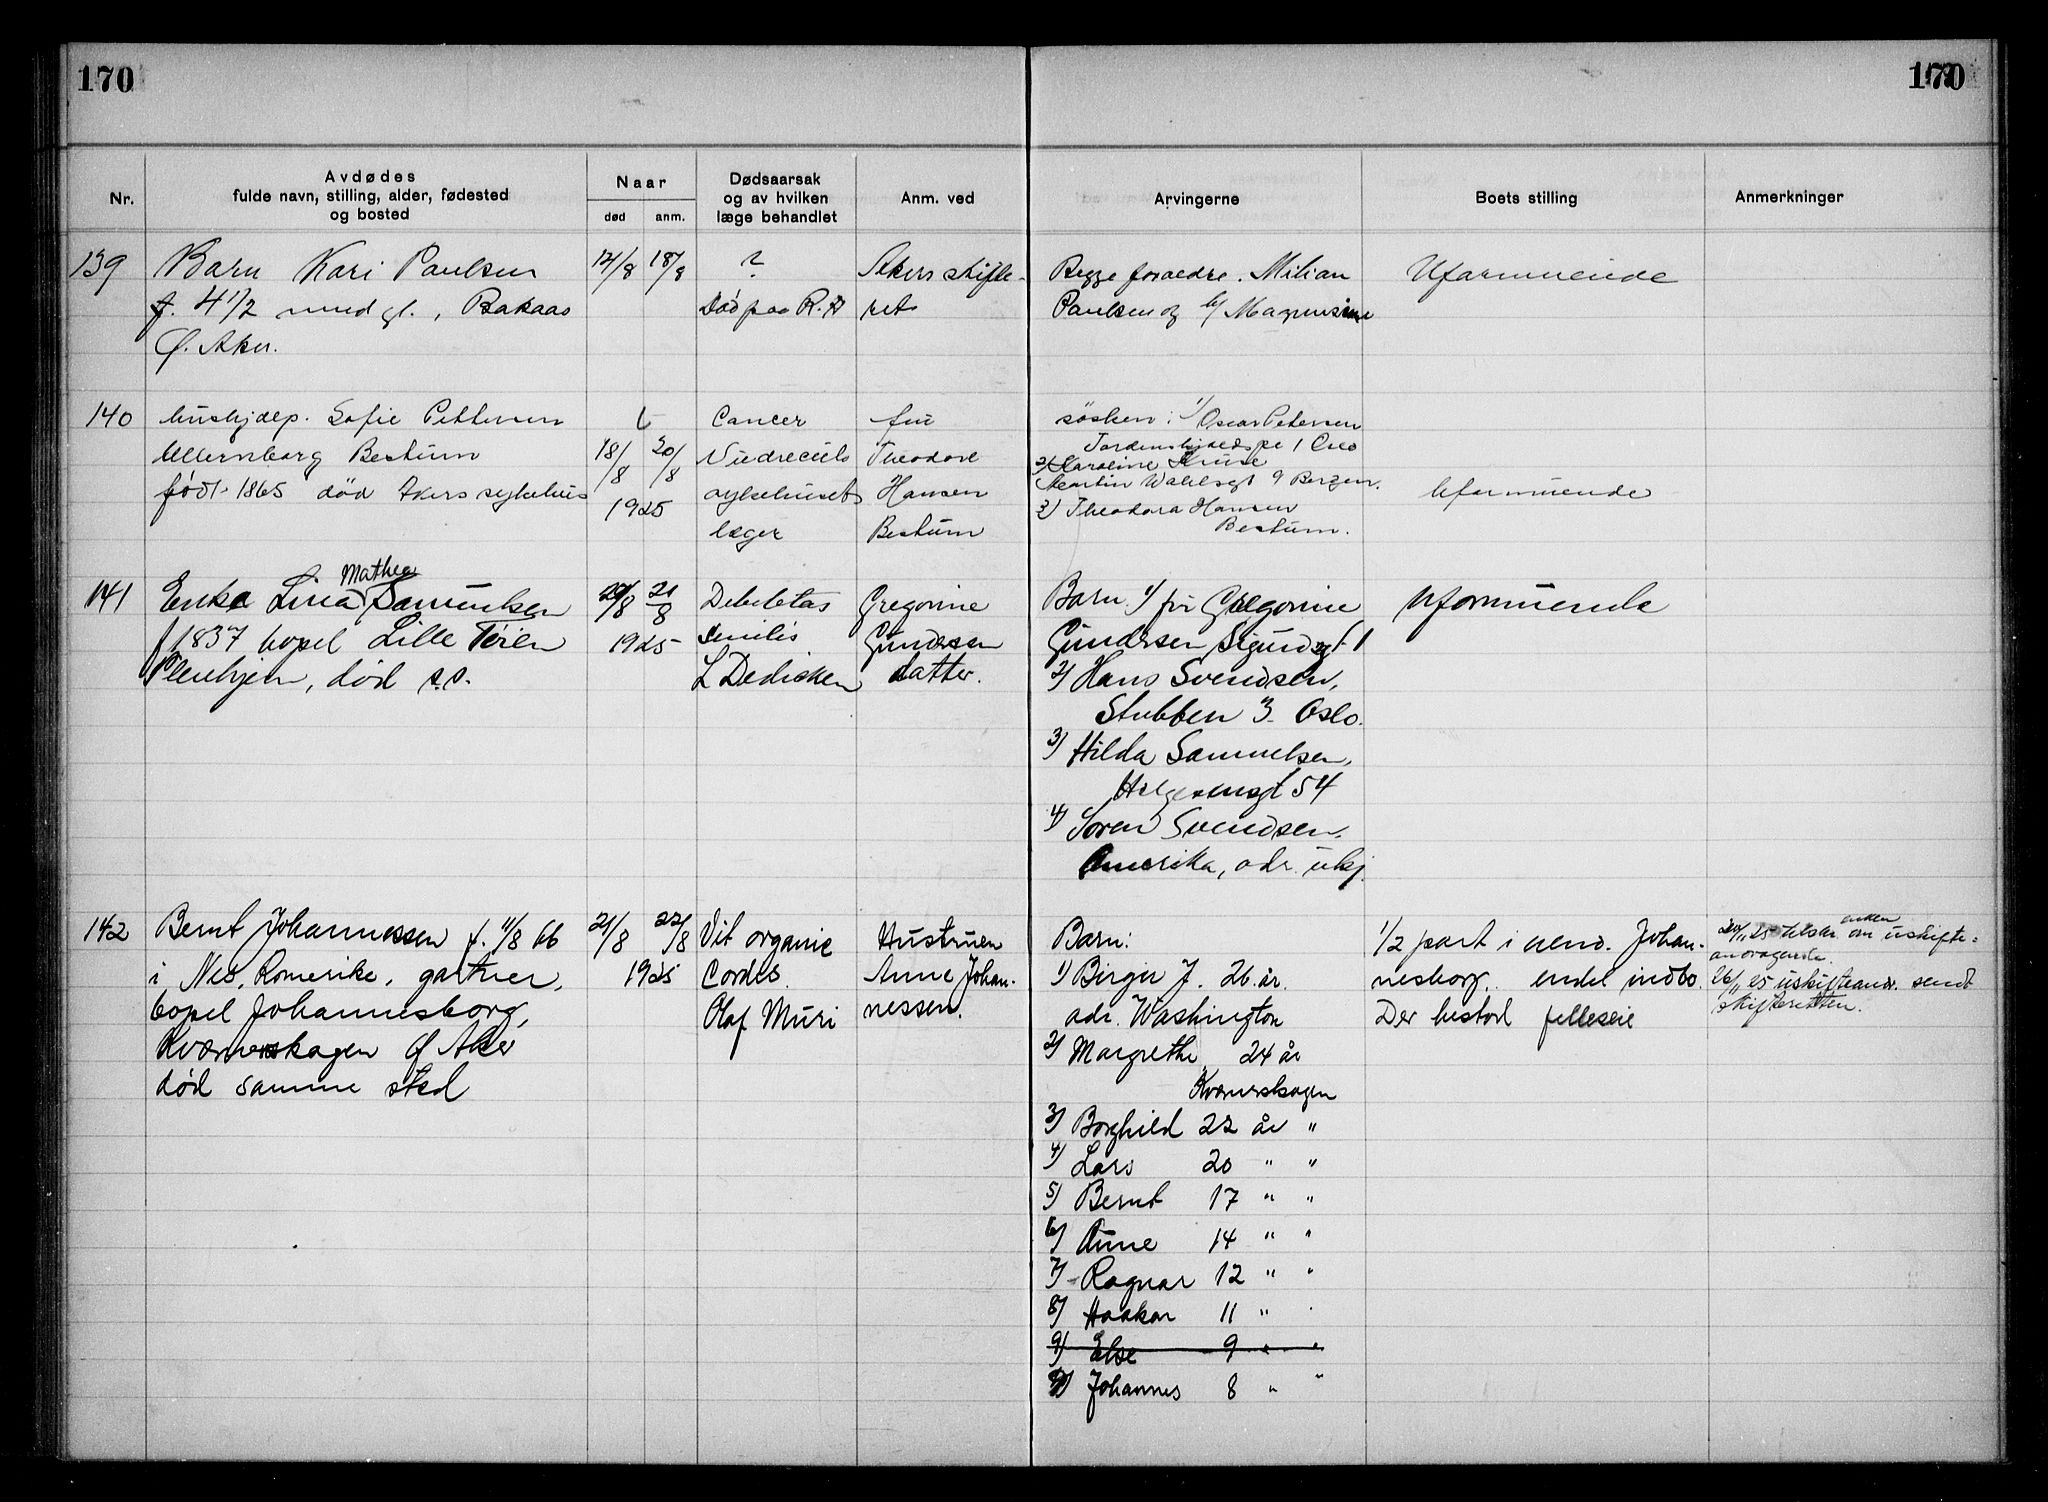 170
170
Nr.
Avdødes
fulde navn, stilling, alder, fødested
og bosted
Naar
død
anm.
Dødsaarsak
og av hvilken
læge behandlet
Anm. ved
Arvingerne
Boets stilling
Anmerkninger
139
Barn Kari Paulsen
f. 4 1/2 mnd gl., Bakaas
Ø. Aker.
12/8
18/8
?
Død paa R.H
Akers skifte-
ret
Begge foraedre. Milian
Paulsen og
Uformuende
140
hushjelp. Sofie Pettersen
Ullernborg Bestum
født 1865 død Akers sykehus
18/8
20/8
1925
Cancer
sykehusets
læger
fru
Theodore
Hansen
Bestum
søsken: 1/ Oscar Petersen
Tordenskjoldspl 1 Oslo
2/ Karoline Kruse
Martin Wahlsgt 9 Bergen.
3/ Theodora Hansen
Bestum.
Uformuende
141
Enke Lina Mathea Samuelsen
f 1837 bopel Lille Tøien
Pleiehjem, død s.s.
20/8
21/8
1925
Debilitas
senilis
L Dedichen
Gregorine
Gundersen
datter.
Barn. 1/ fru Gregorine
Gundersen Sigurdsgt 1
2/ Hans Svendsen,
Stubben 3. Oslo.
3/ Hilda Samuelsen,
Helgesensgt 54
4/ Soren Svendsen.
Amerika, adr. ukj.
Uformuende
142
Bernt Johannessen f. 11/8 66
i Nes, Romerike, gartner,
bopel Johannesborg,
Kværnerskogen Ø Aker
død samme sted
21/8
22/8
1925
Vit organic
Cordis.
Olaf Muri
Hustruen
Anne Johan-
nessen.
Barn:
1) Birger J. 26 år.
adr. Washington
2) Margrethe, 24 år
Kværnerskogen
3) Borghild 22 år "
4) Lars 20 " "
5) Bernt 17 " "
6) Anne 14 " "
7) Ragnar 12 " "
8) Haakon 11 " "
9) Else 9 " "
9) Johannes 8 " "
1/2 part i eiend. Johan-
nesborg. endel indbo.
Der bestod felleseie
20/11 25 enken om uskifte-
andragende.
26/11 25 uskifteandr. sendt
skifteretten.